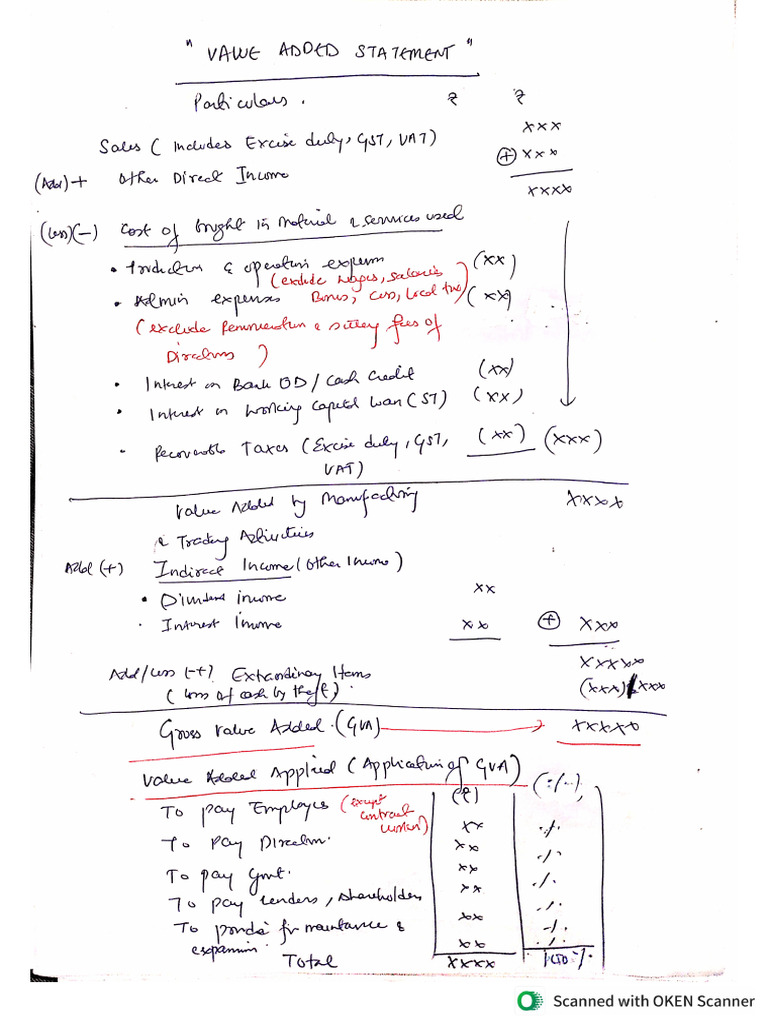 " VALUE ADDED STATEMENT "
Particulars . ₹ ₹
Sales ( Includes Excise duty, GST, VAT) xxx
(Add) + Other Direct Income + xxx
xxxx
(Less)(-) Cost of bought in material & services used
• Production & operation expenses (xx)
(exclude wages, salaries
• Admin expenses Bonus, Cess, local tax) (xx)
(exclude Remuneration & sitting fees of
Directors )
• Interest on Bank OD / Cash Credit (xx)
• Interest on working capital loan (ST) (xx)
• Recoverable Taxes (Excise duty, GST, (xx) (xxx)
VAT)
Value Added by Manufacturing xxxx
& Trading Activities
Add (+) Indirect Income (Other Income)
• Dividend income xx
• Interest Income xx + xxx
xxxxx
Add/Less (-+) Extraordinary Items (xxx)/xxx
( Loss of cash by theft) .
Gross Value Added. (GVA) → xxxxx
Value Added Applied (Application of GVA)
(₹) (%)
To pay Employees (except contract worker) xx %
To pay Director. xx %
To pay Govt. xx %
To pay lenders, shareholders xx %
To provide for maintance & xx %
expansion. xx %
Total xxxx 100 %
Scanned with OKEN Scanner